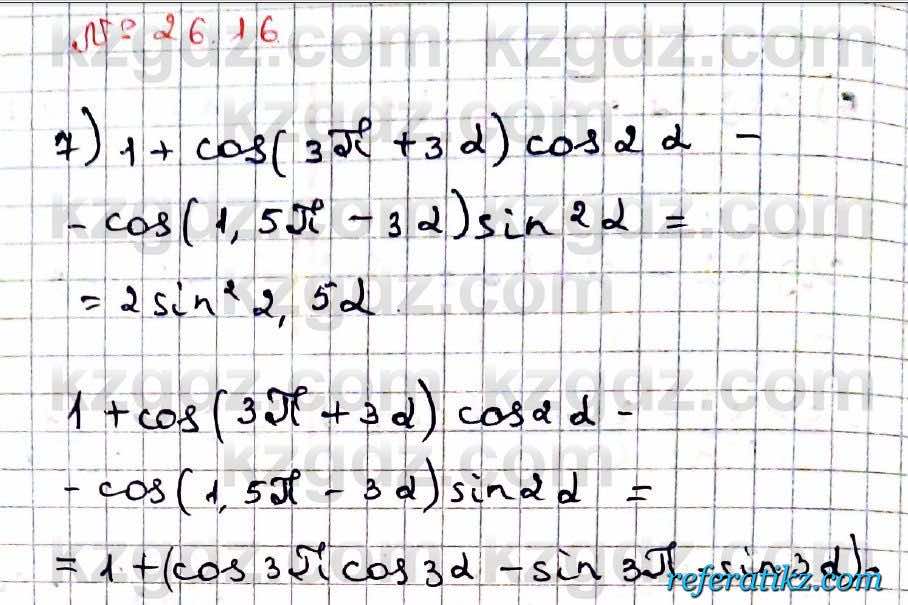 № 26.16
7) 1 + cos(3π + 3α) cos 2α -
- cos(1,5π - 3α) sin 2α =
= 2 sin² 2,5α.
1 + cos(3π + 3α) cos 2α -
- cos(1,5π - 3α) sin 2α =
= 1 + (cos 3π cos 3α - sin 3π · sin 3α) ·
kzgdz.com
referatikz.com